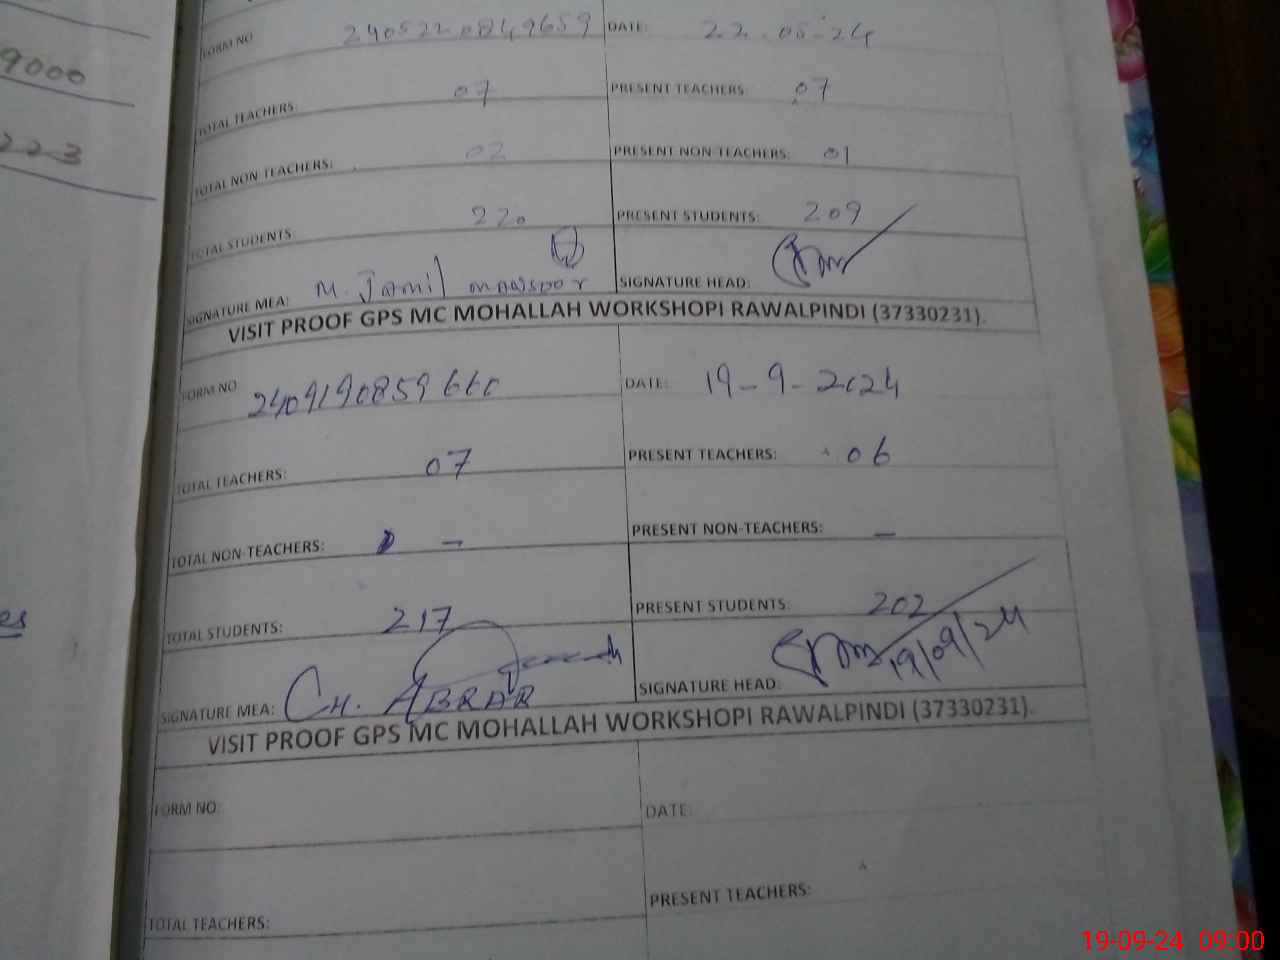 9000
223
es
FORM NO 2405220849659 DATE: 22.05.24
TOTAL TEACHERS: 07 PRESENT TEACHERS 07
TOTAL NON-TEACHERS: 02 PRESENT NON-TEACHERS: 01
TOTAL STUDENTS 220 PRESENT STUDENTS: 209
SIGNATURE MEA: M. Jamil MANSOOR SIGNATURE HEAD:
VISIT PROOF GPS MC MOHALLAH WORKSHOPI RAWALPINDI (37330231).
FORM NO 2409190859660 DATE: 19-9-2024
TOTAL TEACHERS: 07 PRESENT TEACHERS: 06
TOTAL NON-TEACHERS: - PRESENT NON-TEACHERS: -
TOTAL STUDENTS: 217 PRESENT STUDENTS: 202
SIGNATURE MEA: CH. ABRAR SIGNATURE HEAD: 19/09/24
VISIT PROOF GPS MC MOHALLAH WORKSHOPI RAWALPINDI (37330231).
FORM NO: DATE:
TOTAL TEACHERS: PRESENT TEACHERS:
19-09-24 09:00